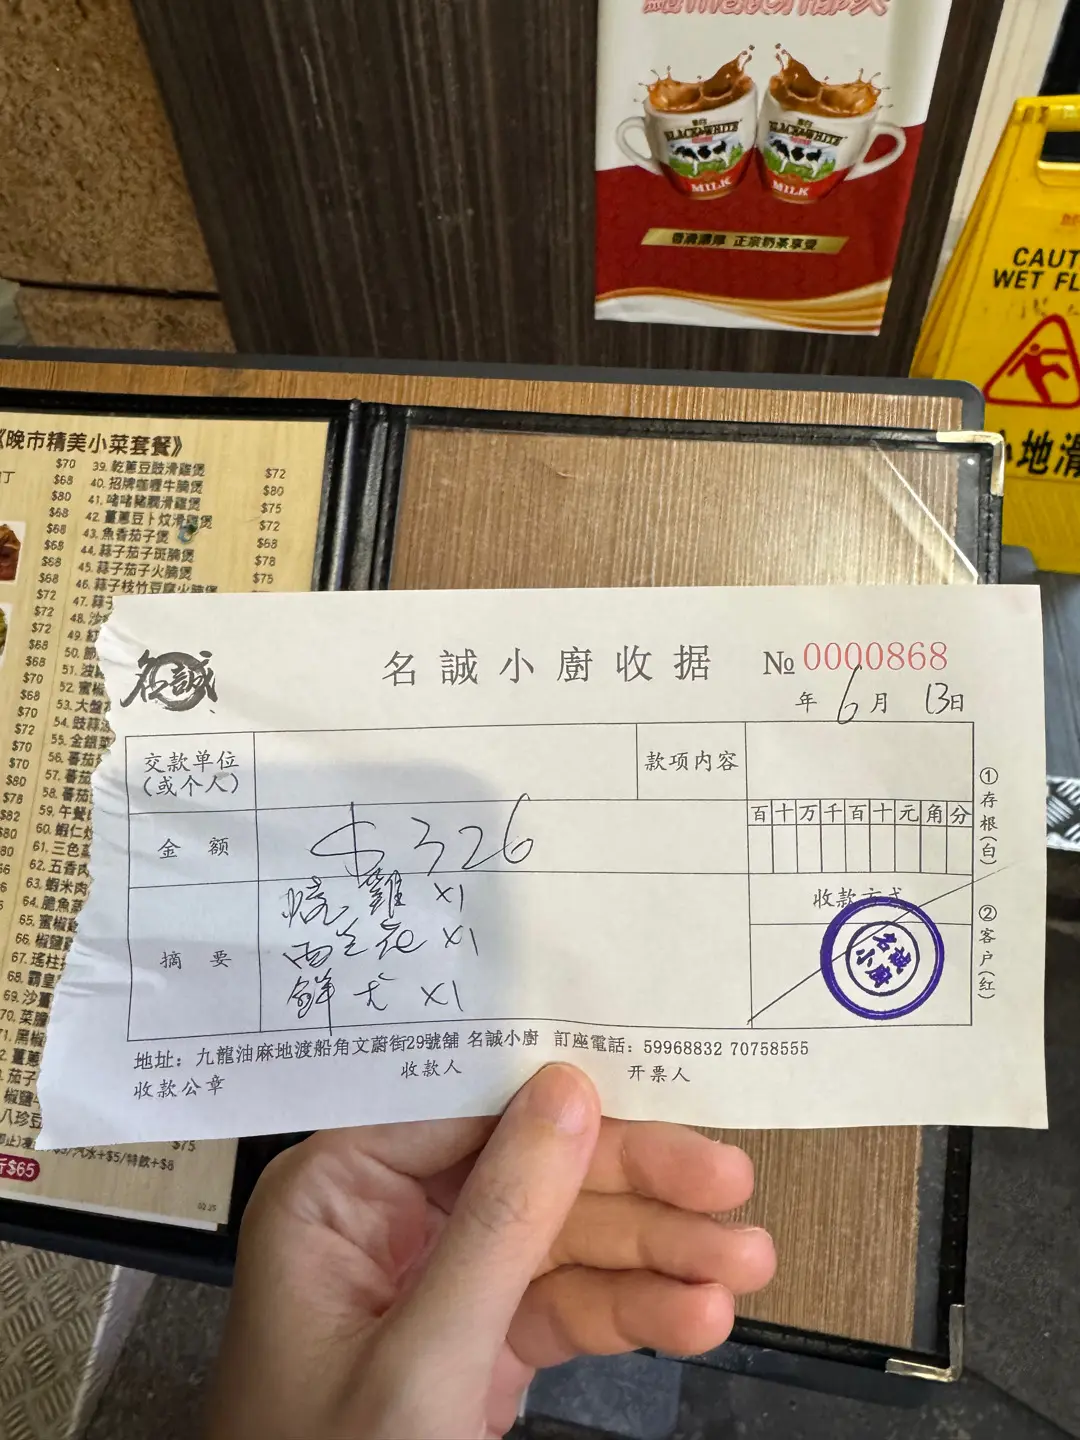 BLACK&WHITE
MILK
BLACK&WHITE
MILK
香濃濃厚 正宗奶茶享受
CAUT
WET FL
小地滑
《晚市精美小菜套餐》
$70 39. 乾蔥豆豉滑雞煲 $72
$68 40. 招牌咖喱牛腩煲 $80
$80 41. 啫啫豬膶滑雞煲 $75
$68 42. 薑蔥豆卜炆滑雞煲 $72
$68 43. 魚香茄子煲 $68
$68 44. 蒜子茄子斑腩煲 $78
$68 45. 蒜子茄子火腩煲 $75
$68 46. 蒜子枝竹豆腐火腩煲
$72 47. 蒜子
$72 48. 沙
$72 49. 紅
$68 50. 節
$68 51. 波
$70 52. 蜜椒
$68 53. 大盤
$70 54. 豉蒜
$72 55. 金銀菜
$70 56. 蕃茄
$70 57. 蕃茄
$80 58. 蕃茄
$78 59. 午餐
$82 60. 蝦仁炒
$80 61. 三色蒸
62. 五香肉
63. 蝦米肉
64. 脆魚蒸
65. 蜜椒
66. 椒鹽
67. 瑤柱
68. 霸皇
69. 沙薑
70. 菜脯
71. 黑椒
薑蔥
茄子
椒鹽
八珍豆
$75
汽水+$5/特飲+$8
$65
02.25
名誠
名誠小廚收据
№ 0000868
年 6 月 13 日
交款单位
(或个人)
款项内容
金 额
$ 326
百 十 万 千 百 十 元 角 分
摘 要
燒雞 X1
西兰花 X1
鮮尤 X1
收款方式
名誠
小廚
①存根(白)
②客户(红)
地址：九龍油麻地渡船角文蔚街29號舖 名誠小廚 訂座電話：59968832 70758555
收款公章 收款人 开票人